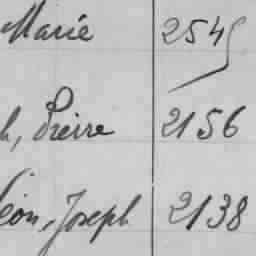 Marie 2545
h, Pierre 2156
Léon, Joseph 2138